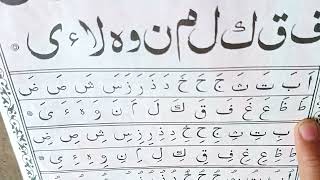 ف ق ك ل م ن و ه لا ء ى
اَ بَ تَ ثَ جَ حَ خَ دَ ذَ رَ زَ سَ شَ صَ ضَ
طَ ظَ عَ غَ فَ قَ كَ لَ اَ نَ وَ هَ ءَ ىَ
اِ بِ تِ ثِ جِ حِ خِ دِ ذِ رِ زِ سِ شِ صِ ضِ
طِ ظِ عِ غِ فِ قِ كِ لِ اِ نِ وِ هِ ءِ ىِ